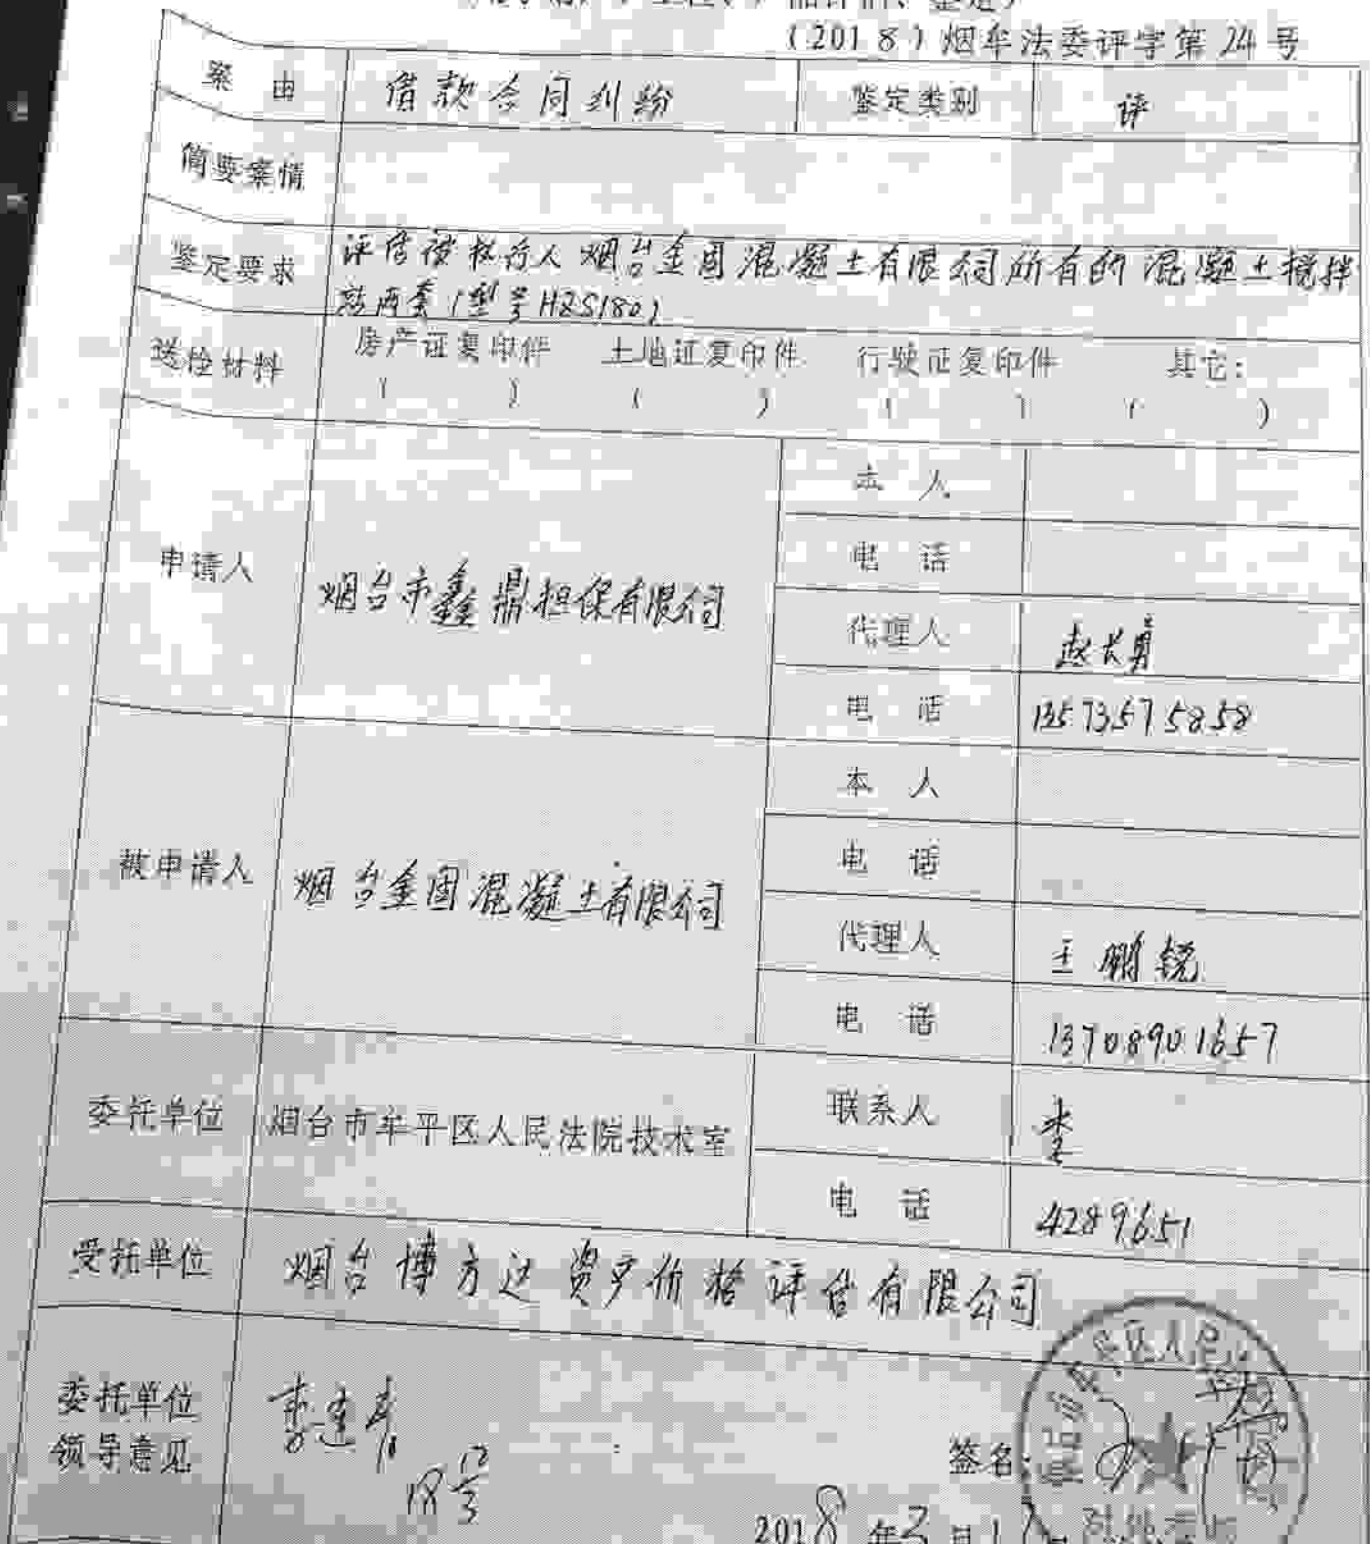 (2018)烟牟法委评字第24号
案 由 借款合同纠纷 鉴定类别 评
简要案情
鉴定要求 评估被执行人烟台金固混凝土有限公司所有的混凝土搅拌
站两套(型号HZS180)
送检材料 房产证复印件 土地证复印件 行驶证复印件 其它:
( ) ( ) ( ) ( )
本 人
电 话
申请人 烟台市鑫鼎担保有限公司
代理人 赵长勇
电 话 13573575858
本 人
电 话
被申请人 烟台金固混凝土有限公司
代理人 王鹏锐
电 话 13708901657
委托单位 烟台市牟平区人民法院技术室 联系人 李
电 话 4289651
受托单位 烟台博方达资产价格评估有限公司
委托单位
领导意见
签名:
2018年3月1